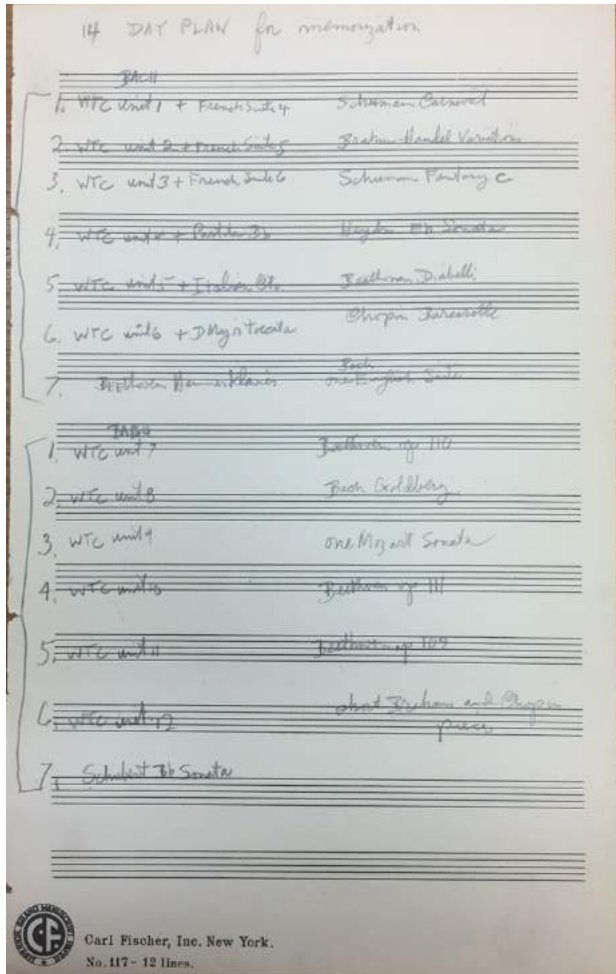 14 DAY PLAN for memorization
BACH
1. WTC unit 1 + French Suite 4 Schuman Carnaval
2. WTC unit 2 + French Suite 5 Brahms Handel Variations
3. WTC unit 3 + French Suite 6 Schuman Fantasy C
4. WTC unit 4 + Partita Bb Haydn Eb Sonata
5. WTC unit 5 + Italian Beethoven Diabelli
6. WTC unit 6 + D Major Toccata Chopin Barcarolle
Bach
7. BEEthoven Hammerklavier one English Suite
BACH
1. WTC unit 7 Beethoven op 110
2. WTC unit 8 Bach Goldberg
3. WTC unit 9 one Mozart Sonata
4. WTC unit 10 Beethoven op 111
5. WTC unit 11 Beethoven op 109
6. WTC unit 12 short Brahms and Chopin
pieces
7. Schubert Bb Sonata
CF
Carl Fischer, Inc. New York.
No. 117 - 12 lines.